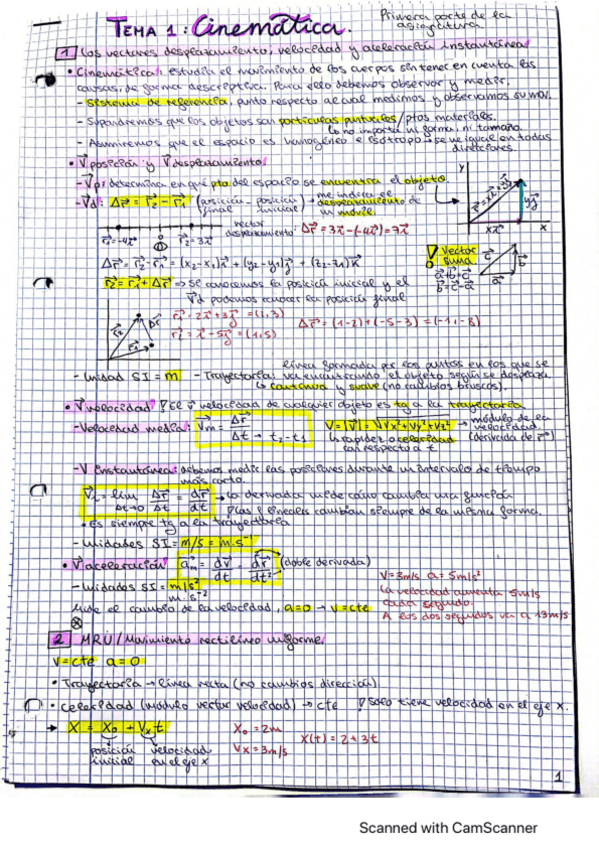 Primera parte de la
asignatura
TEMA 1: Cinemática.
1 Los vectores desplazamiento, velocidad y aceleración instantánea
• Cinemática: estudia el movimiento de los cuerpos sin tener en cuenta las
causas, de forma descriptiva. Para ello debemos observar y medir.
- Sistema de referencia, punto respecto al cual medimos y observamos su mov.
- Supondremos que los objetos son partículas puntuales / ptos materiales.
↳ no importa ni forma, ni tamaño.
- Asumiremos que el espacio es homogéneo e isótropo → se ve igual en todas
direcciones.
• V⃗ posición y V⃗ desplazamiento
- V⃗p: determina en qué pto del espacio se encuentra el objeto.
- V⃗d: Δr⃗ = r⃗2 - r⃗1 (posición final - posición inicial) → me indica el desplazamiento de un móvil
r⃗1 = -4x⃗ 0 r⃗2 = 3x⃗
vector desplazamiento: Δr⃗ = 3x⃗ - (-4x⃗) = 7x⃗
Δr⃗ = r⃗2 - r⃗1 = (x2 - x1)i⃗ + (y2 - y1)j⃗ + (z2 - z1)k⃗
r⃗2 = r⃗1 + Δr⃗ ⇒ si conocemos la posición inicial y el
V⃗d podemos conocer la posición final
y
x
Vector
suma
a⃗ + b⃗ = c⃗
b⃗ = c⃗ - a⃗
c⃗
b⃗
a⃗
r⃗2
Δr⃗
r⃗1
= 2x⃗ + 3y⃗ = (2,3)
= x⃗ - 5y⃗ = (1,5)
Δr⃗ = (1-2) + (-5-3) = (-1, -8)
- Unidad SI = m
- Trayectoria: línea formada por los puntos en los que se
va encontrando el objeto según se desplaza
↳ continua y suave (no cambios bruscos).
• V⃗ velocidad ! El v⃗ velocidad de cualquier objeto es tg a la trayectoria
- Velocidad media: V⃗m = Δr⃗ / Δt → t2 - t1
V = |V⃗| = √Vx² + Vy² + Vz² → módulo de la
velocidad.
(derivada de r⃗)
↳ rapidez o celeridad
con respecto a t
- V instantánea: debemos medir las posiciones durante un intervalo de tiempo
más corto.
V⃗i = lim Δt→0 Δr⃗/Δt = dr⃗/dt → la derivada mide cómo cambia una función
! las f lineales cambian siempre de la misma forma.
• Es siempre tg a la trayectoria
- Unidades SI = m/s = m·s⁻¹
• V⃗ aceleración a⃗m = dv⃗/dt = dr⃗/dt² (doble derivada)
- Unidades SI = m/s²
m·s⁻²
Mide el cambio de la velocidad, a=0 → v=cte
V = 3m/s a = 5m/s²
La velocidad aumenta 5m/s
cada segundo.
A los dos segundos va a 13m/s
2 MRU / Movimiento rectilíneo uniforme
V = cte a = 0
• Trayectoria → línea recta (no cambios dirección)
• Celeridad (módulo vector velocidad) → cte ! Solo tiene velocidad en el eje x.
→ X = X0 + Vx t
posición inicial
velocidad en el eje x
X0 = 2m
Vx = 3m/s
X(t) = 2 + 3t
1
Scanned with CamScanner